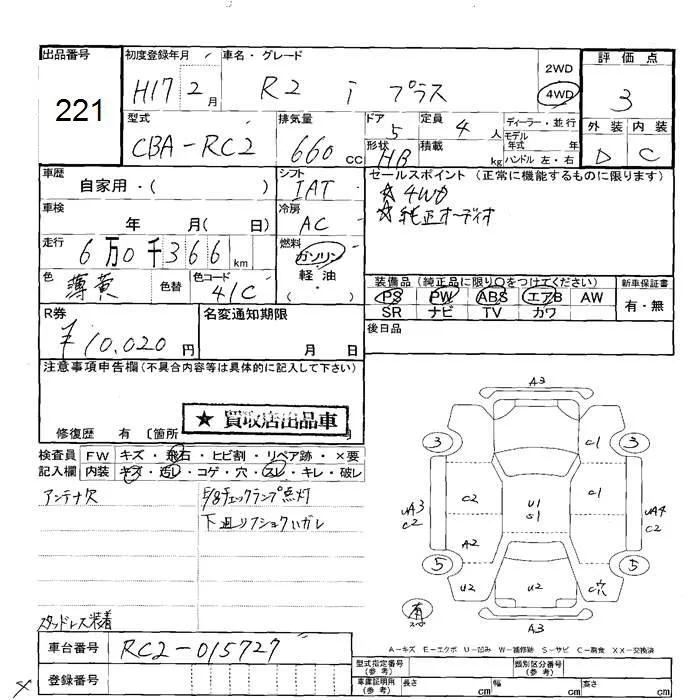 出品番号
221
初度登録年月
H17 2月
車名・グレード
R2 i プラス
2WD
4WD
評価点
3
型式
CBA-RC2
排気量
660 cc
ドア
5
定員
4 人
形状
HB
積載
kg
ディーラー・並行
モデル
年式 年
ハンドル 左・右
外装 内装
D C
車歴
自家用・( )
シフト
IAT
セールスポイント (正常に機能するものに限ります)
☆4WD
☆純正オーディオ
車検
年 月( 日)
冷房
AC
走行
6万0千366km
燃料
ガソリン
軽油
( )
色
薄黄
色替
色コード
41C
装備品 (純正品に限り○をつけてください)
PS PW ABS エアB AW
SR ナビ TV カワ
新車保証書
有・無
R券
¥10,020円
名変通知期限
月 日
後日品
注意事項申告欄(不具合内容等は具体的に記入して下さい)
★ 買取店出品車
修復歴 有 〔箇所
検査員
記入欄
FW キズ・飛石・ヒビ割・リペア跡・×要
内装 キズ・汚レ・コゲ・穴・スレ・キレ・破レ
アンテナ欠
チェックランプ点灯
スタッドレス装着
A3
3
C1
3
UA3
C2
C2
U1
S1
C1
UA4
C2
A2
5
5
U2
U2
C穴
有
A3
A-キズ E-エクボ U-凹み W-補修跡 S-サビ C-腐食 XX-交換済
車台番号
RC2-015727
登録番号
型式指定番号
(参考)
類別区分番号
(参考)
車庫証明用
(参考)
長さ cm 幅 cm 高さ cm